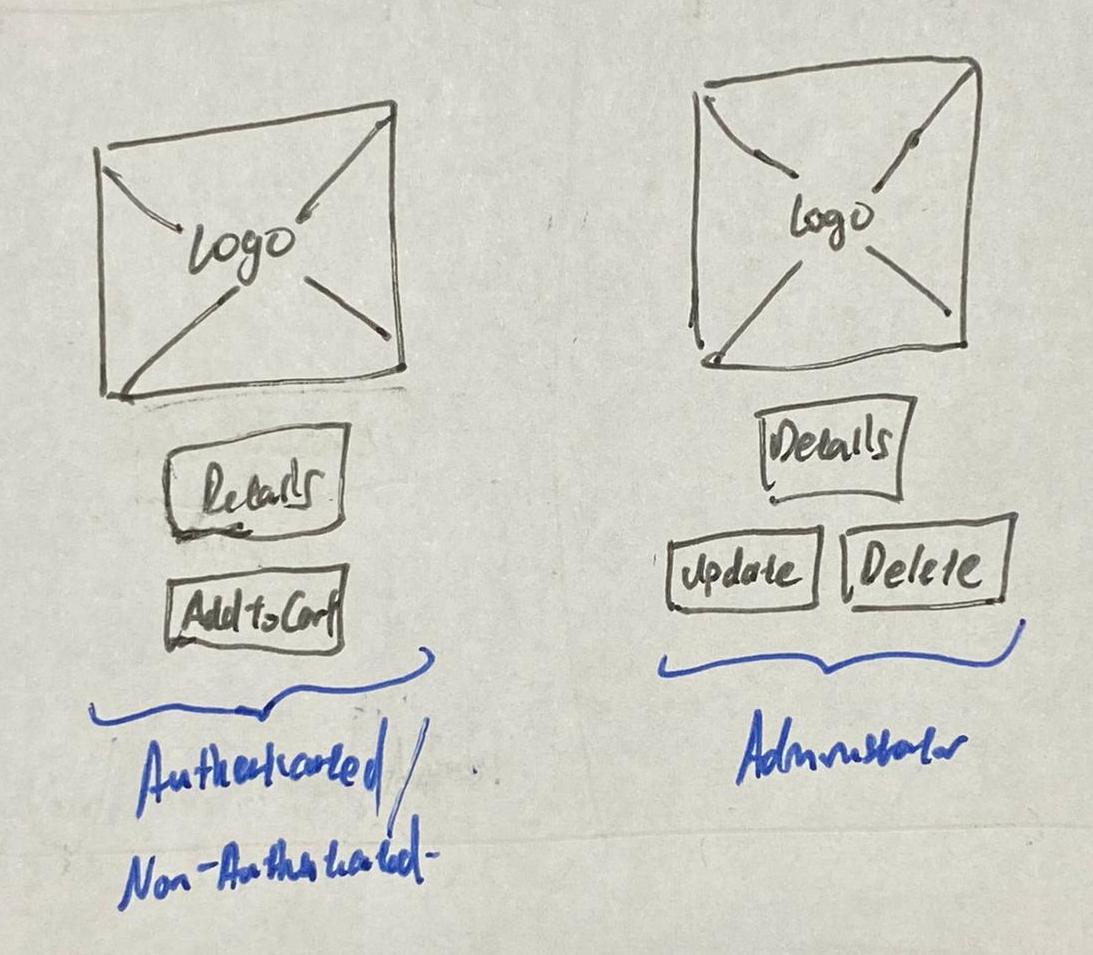 Logo
Details
Add to Cart
Authenticated/
Non-Authenticated
Logo
Details
Update
Delete
Administrator